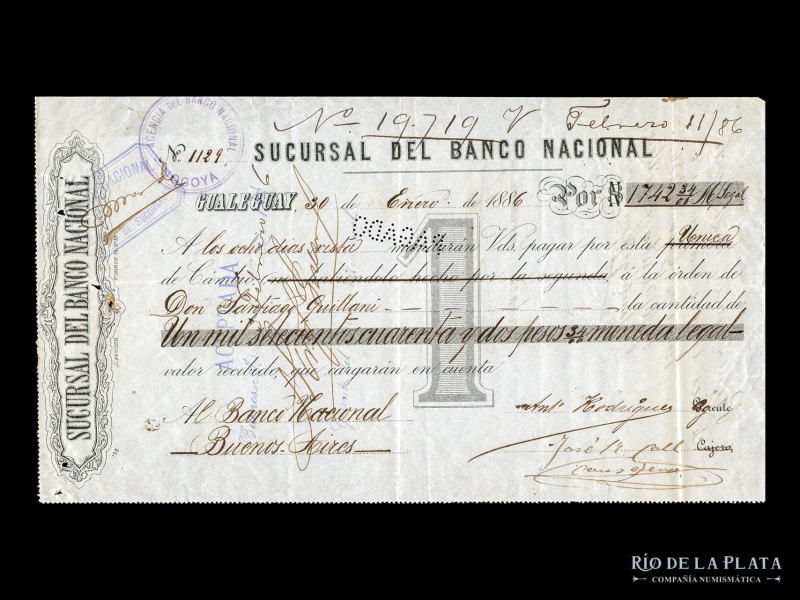 No. 19.719 V Febrero 11/86
AGENCIA DEL BANCO NACIONAL
GOYA
No. 1129
SUCURSAL DEL BANCO NACIONAL
GUALEGUAY, 30 de Enero de 1886 Por $ 1742 34 M. Legal
PAGADO
A los ocho dias vista mandarán Vds. pagar por esta Unica
de Cambio (no habiéndolo hecho por la segunda, á la órden de
Don Santiago Quillani la cantidad de
Un mil setecientos cuarenta y dos pesos 34 moneda legal
valor recibido, que cargarán en cuenta
ACEPTADA
1
Al Banco Nacional Ant. Rodrigues Gerente
Buenos-Aires José Coll Cajero,
SUCURSAL DEL BANCO NACIONAL
RÍO DE LA PLATA
COMPAÑÍA NUMISMÁTICA